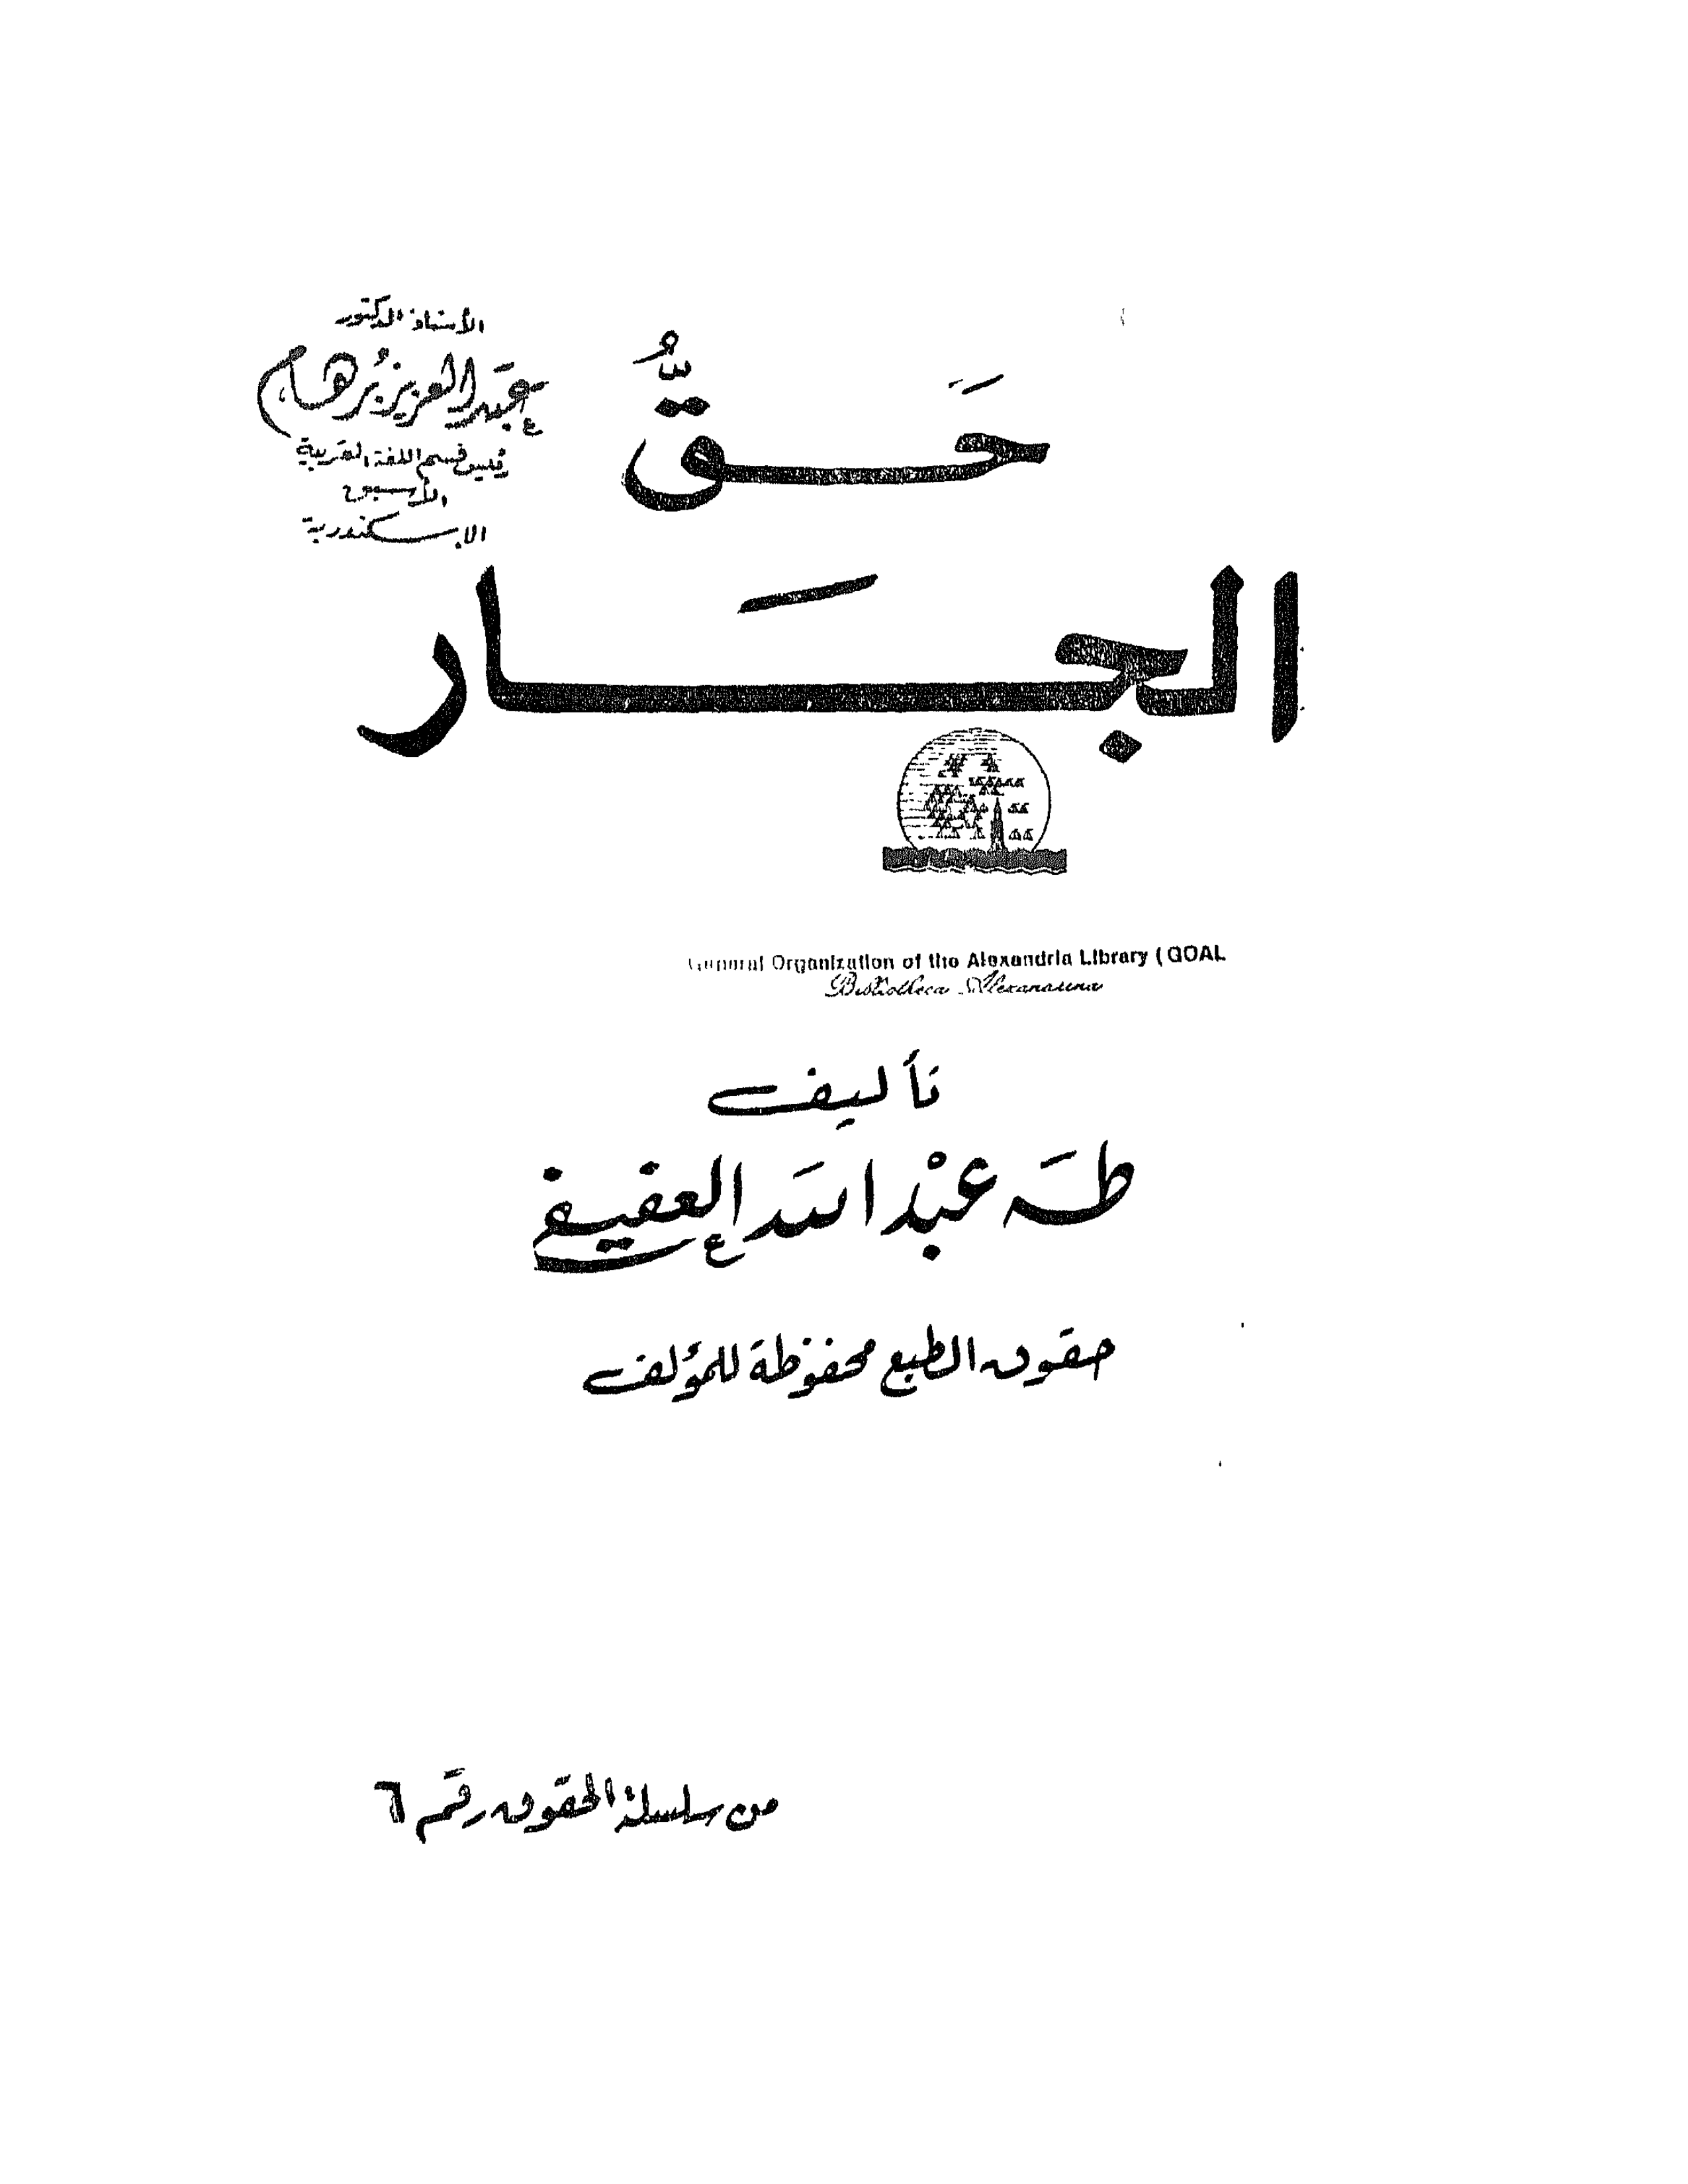 الأستاذ الدكتور
عبد العزيز بُرهام
رئيس قسم اللغة العربية
الأسبق
الإسكندرية
حَقُّ
الجَار
General Organization of the Alexandria Library (GOAL
Bibliotheca Alexandrina
تأليف
طَه عبْد اللَه العفيفي
حقوق الطبع محفوظة للمؤلف
من سلسلة الحقوق رقم ٦